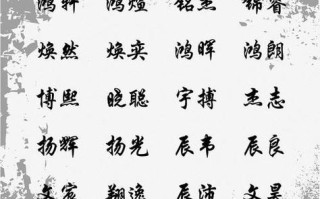 鸿轩 鸿煊 铭杰 锦睿
焕然 焕奕 鸿晖 鸿朗
博熙 晓聪 宇搏 杰志
扬辉 扬光 辰韦 辰良
文宸 翔逸 辰沛 文昊